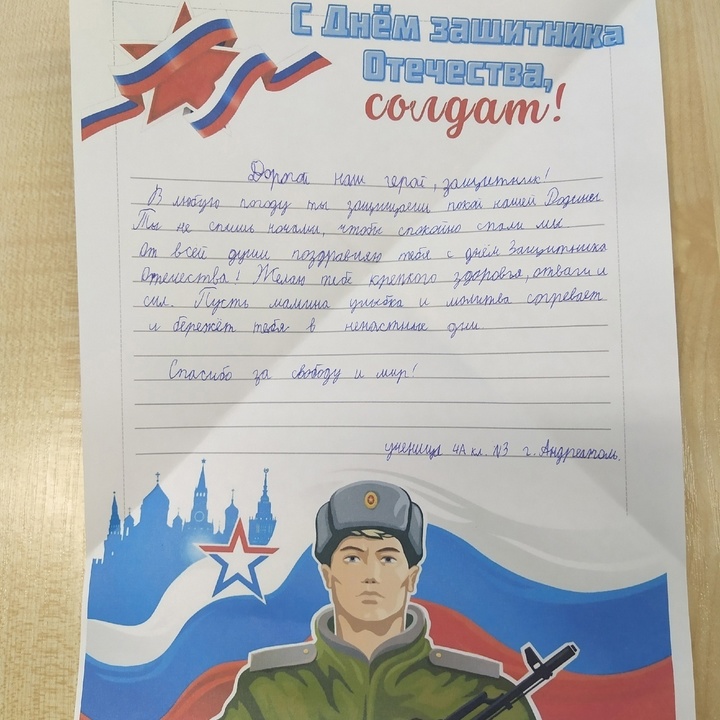 С Днём защитника
Отечества,
солдат!
Дорогой наш герой, защитник!
В любую погоду ты защищаеш покой нашей Родины.
Ты не спишь ночами, чтобы спокойно спали мы.
От всей души поздравляю тебя с днём Защитника
Отечества! Желаю тебе крепкого здоровья, отваги и
сил. Пусть мамина улыбка и молитва согревает
и бережёт тебя в ненастные дни.
Спасибо за свободу и мир!
ученица 4А кл. №3 г. Андреаполь.